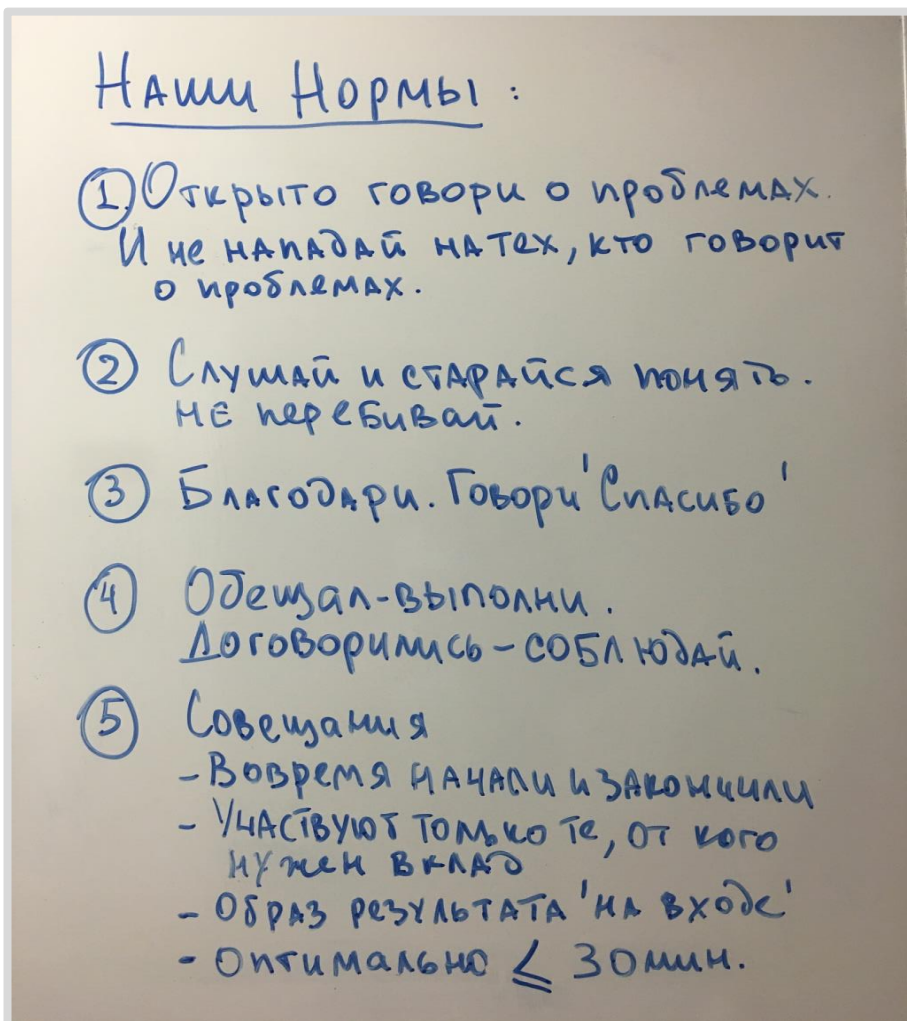 Наши Нормы:
1. Открыто говори о проблемах.
И не нападай на тех, кто говорит
о проблемах.
2 Слушай и старайся понять.
НЕ перебивай.
3 Благодари. Говори 'Спасибо'
4 Обещал-выполни.
Договорились-соблюдай.
5 Совещания
- Вовремя начали и закончили
- Участвуют только те, от кого
нужен вклад
- Образ результата 'на входе'
- Оптимально ≤ 30 мин.